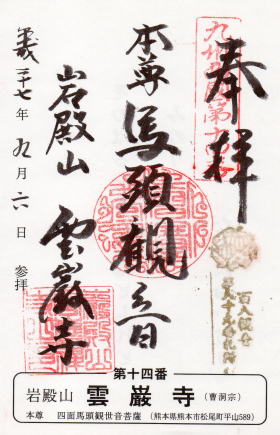 奉拝
本尊 馬頭観世音
岩殿山 雲巌寺
二十七年九月六日 参拝
第十四番
岩殿山 雲巌寺 (曹洞宗)
本尊 四面馬頭観世音菩薩 (熊本県熊本市松尾町平山589)